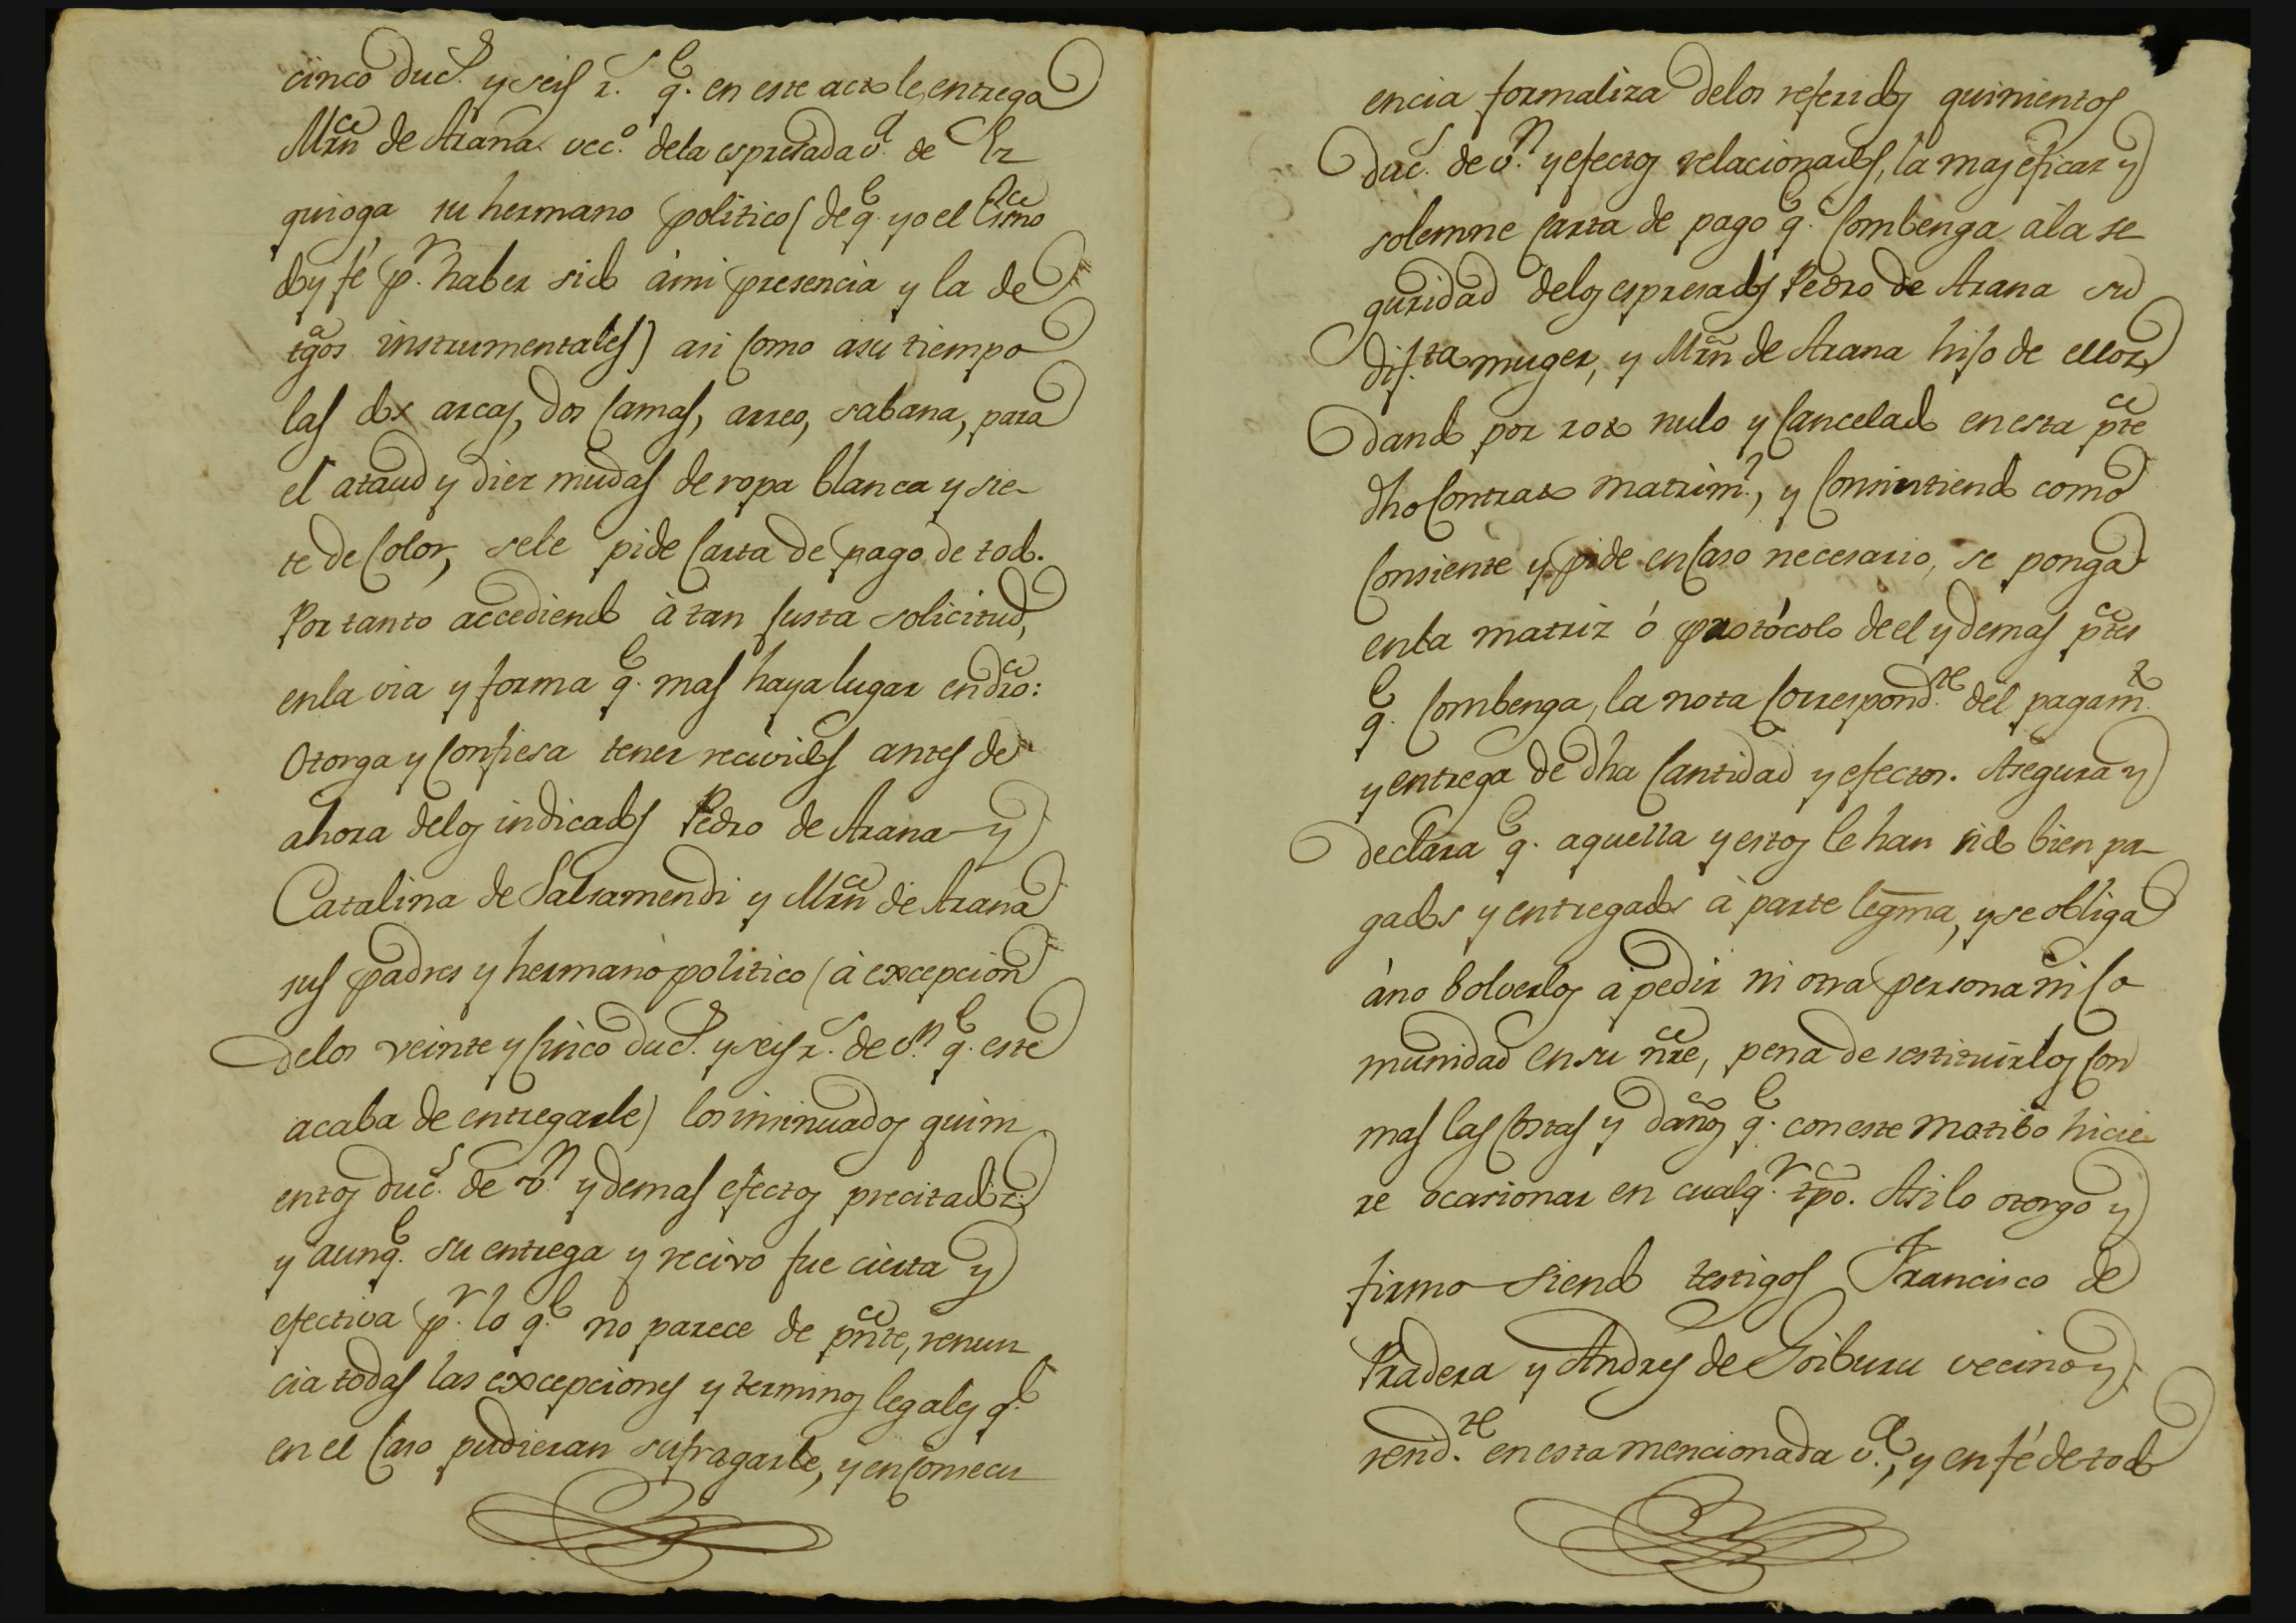 cinco duc.s y seis r.s q.e en este acto le entrega
Mrn de Arana vec.o dela espresada v.a de Ez
quioga su hermano politico (de q.e yo el Esno
doy fé p.r haber sido àmi presencia y la de
tgos instrumentales) asi como asu tiempo
las dos arcas, dos camas, arreo, sabana, para
el ataud y diez mudas de ropa blanca y sie-
te de color, sele pide carta de pago de todo.
Por tanto accediendo à tan justa solicitud,
enla via y forma q.e mas haya lugar en dro:
Otorga y confiesa tener recividos antes de
ahora delos indicados Pedro de Arana y
Catalina de Salsamendi y Mrn de Arana
sus padres y hermano politico (à excepcion
delos veinte y cinco duc.s y seis r.s de v.n q.e este
acaba de entregarle) los insinuados quini
entos duc.s de v.n y demas efectos precitados:
y aunq.e su entrega y recivo fue cierta y
efectiva p.r lo q.e no parece de pnte, renun
cia todas las excepciones y terminos legales q.e
en el caso pudieran sufragarle, y en consecu
encia formaliza delos referidos quinientos
duc.s de v.n y efectos relacionados, la mas eficaz y
solemne carta de pago q.e combenga àla se
guridad delos espresados Pedro de Arana su
dif.ta muger, y Mrn de Arana hijo de ellos,
dando por roto nulo y cancelado en esta pte
dho contrato matrim.l, y consintiendo como
consiente y pide en caso necesario, se ponga
enla matriz ó protócolo de el y demas ptes
q.e combenga, la nota correspond.te del pagam.to
y entrega de dha cantidad y efectos. Asegura y
declara q.e aquella y estos le han sido bien pa-
gados y entregados à parte legma, y se obliga
àno bolverlos à pedir ni otra persona ni co
munidad en su nre, pena de restituirlos con
mas las costas y daños q.e con este motibo hicie-
re ocasionar en cualq.r tpo. Asi lo otorgo y
firmo siendo testigos Francisco de
Pradera y Andres de Goiburu vecino y
resid.te en esta mencionada v.a, y en fé de todo